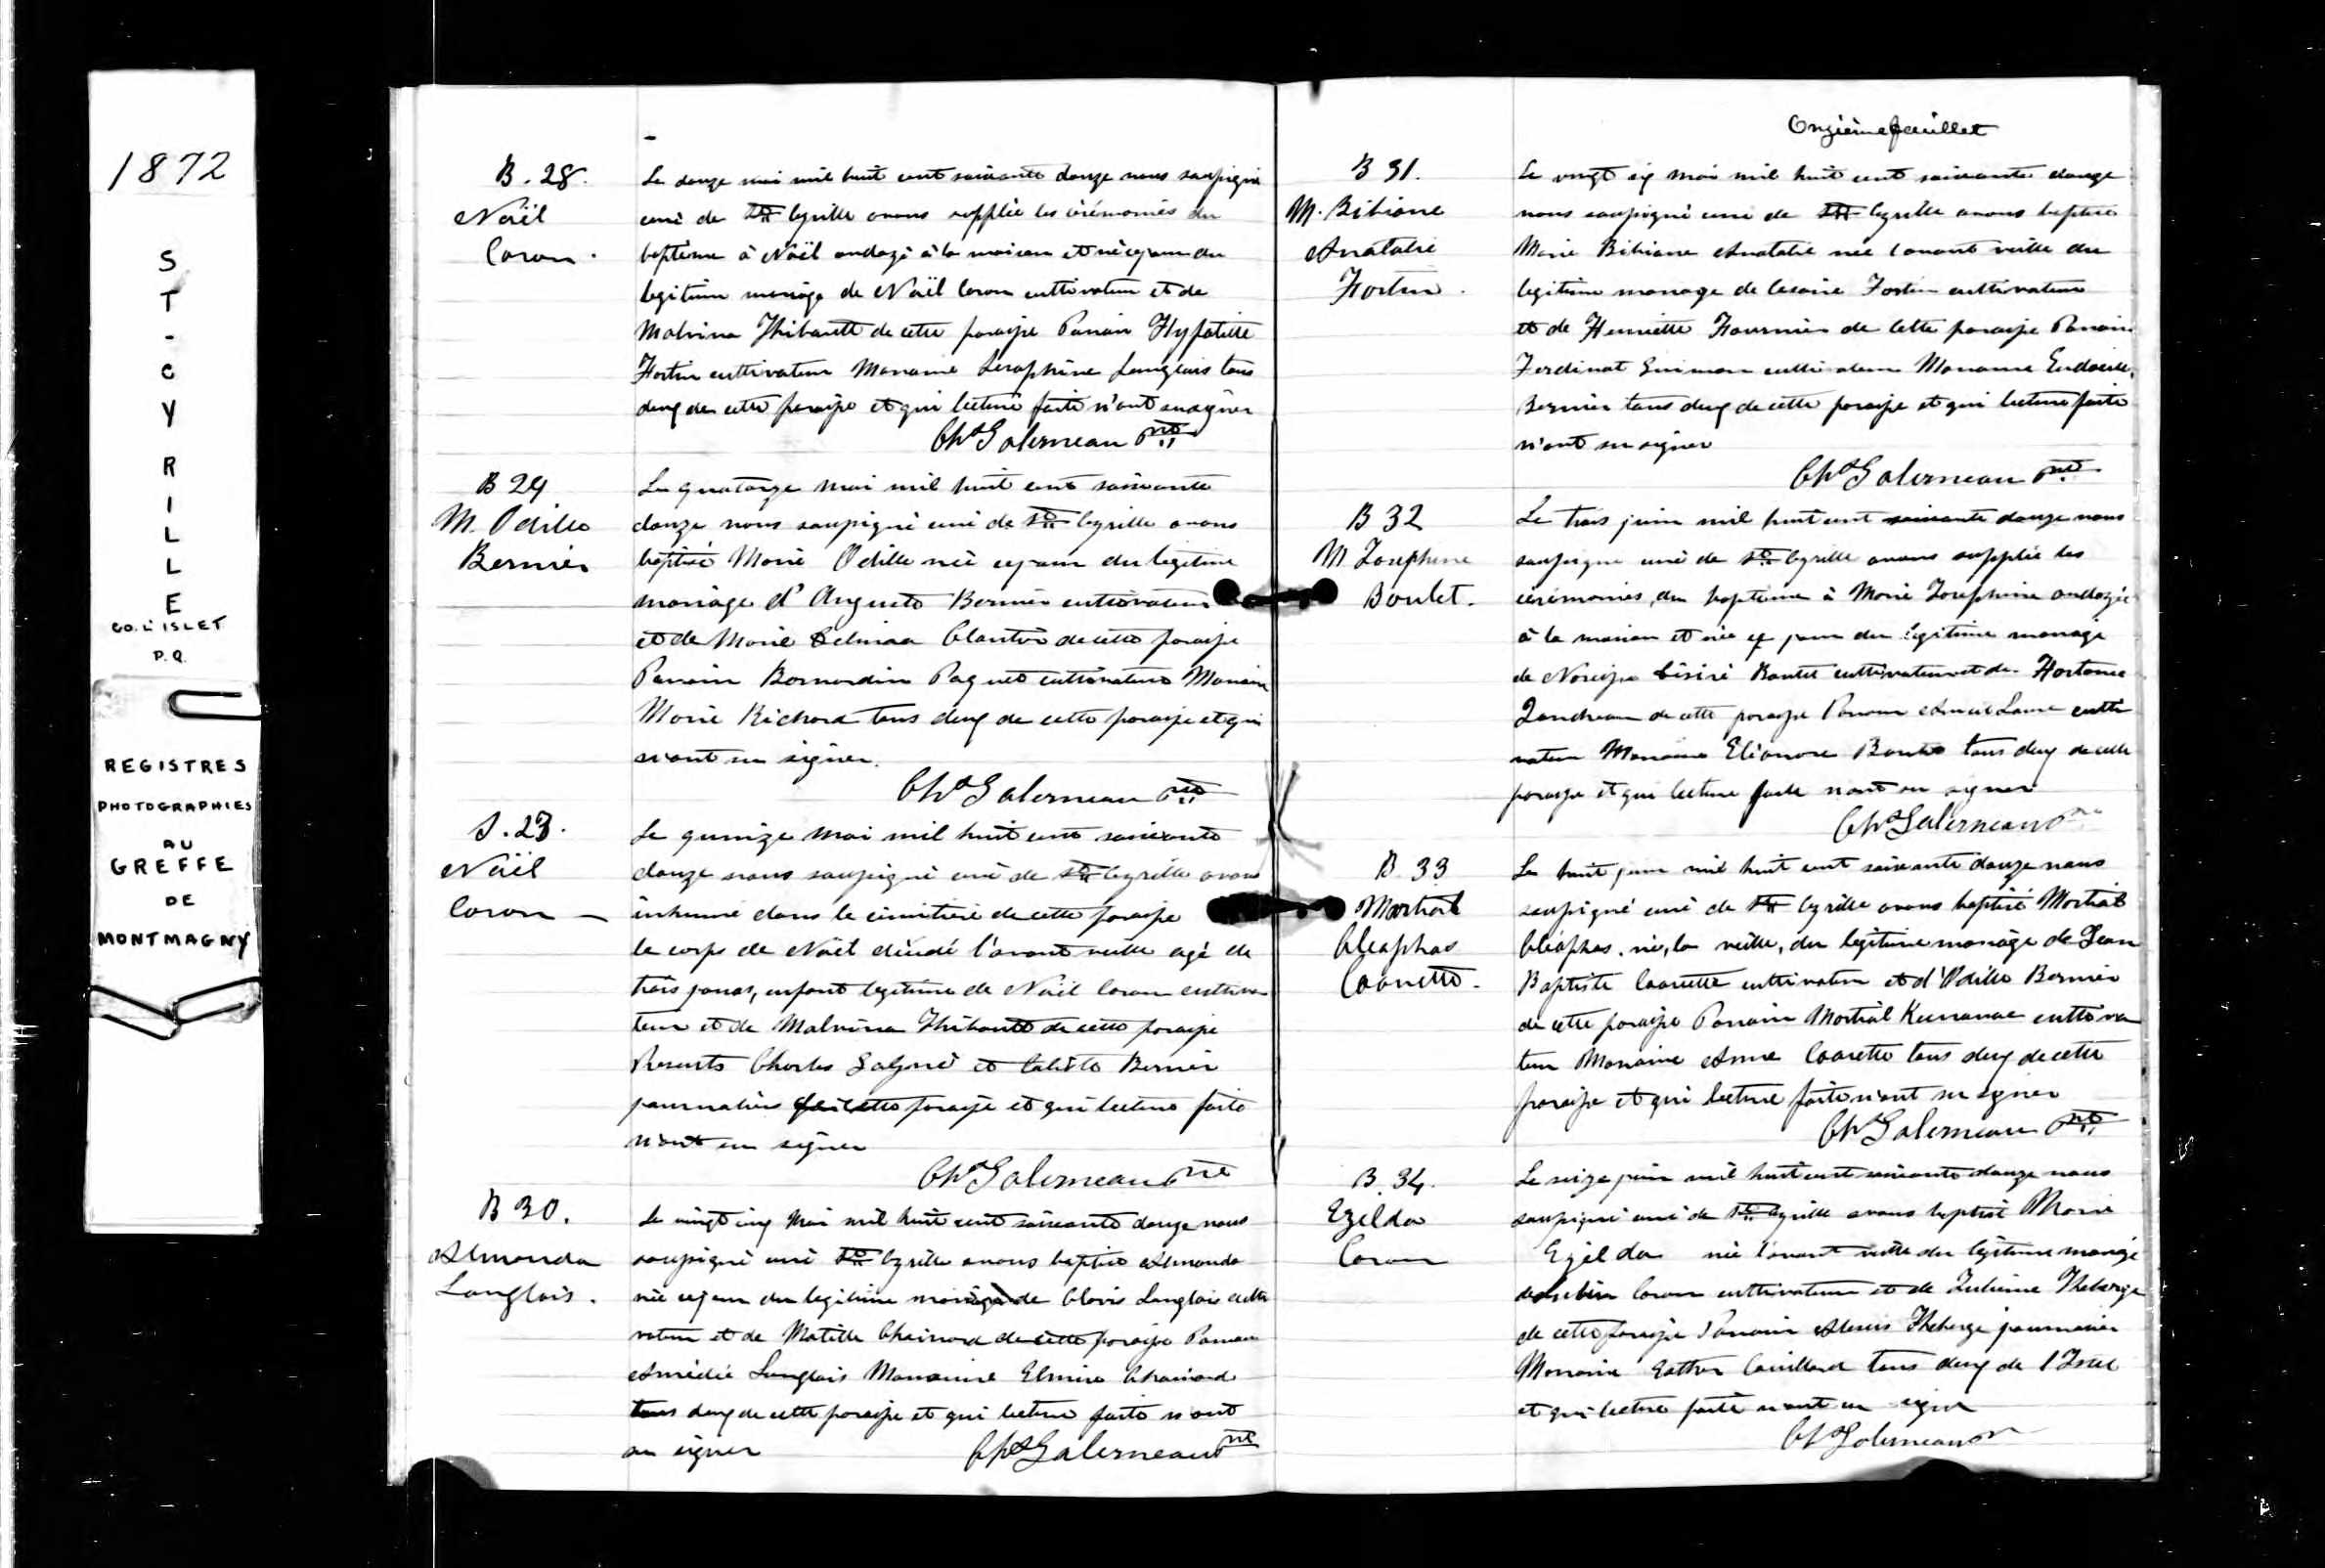 1872
ST-CYRILLE
CO. L'ISLET
P.Q.
REGISTRES
PHOTOGRAPHIES
AU
GREFFE
DE
MONTMAGNY
B. 28.
Noël
Caron.
Le douze mai mil huit cent soixante douze nous soussigné
curé de St Cyrille avons supplée les cérémonies du
baptême à Noël ondoyé à la maison et né ce jour du
legitime mariage de Noël Caron cultivateur et de
Malvina Thibault de cette paroisse Parrain Hypolitte
Fortin cultivateur Marraine Séraphine Langlais tous
deux de cette paroisse et qui lecture faite n'ont su signer
Chs Galerneau Ptre
B 29
M. Odille
Bernier
Le quatorze mai mil huit cent soixante
douze nous soussigné curé de St Cyrille avons
baptisé Marie Odille née ce jour du légitime
mariage d'Auguste Bernier cultivateur
et de Marie Cloutier de cette paroisse
Parrain Bernardin Paquet cultivateur Marraine
Marie Richard tous deux de cette paroisse et qui
n'ont su signer.
Chs Galerneau Ptre
S. 23.
Noël
Caron
Le quinze mai mil huit cent soixante
douze nous soussigné curé de St Cyrille avons
inhumé dans le cimitière de cette paroisse
le corps de Noël décédé l'avant veille agé de
trois jours, enfant legitime de Noël Caron cultiva
teur et de Malvina Thibault de cette paroisse
Presents Charles Gagné et Calixte Bernier
journaliers de cette paroisse et qui lecture faite
n'ont su signer
Chs Galerneau Ptre
B 30.
Almanda
Langlois.
Le vingt cinq Mai mil huit cent soixante douze nous
soussigné curé St Cyrille avons baptisé Almanda
née ce jour du legitime mariage de Clovis Langlois culti
vateur et de Matilde Chainard de cette paroisse Parrain
Amédée Langlais Marraine Elmire Chainard
tous deux de cette paroisse et qui lecture faite n'ont
su signer Chs Galerneau Ptre
Onzième feuillet
B 31.
M. Bibiane
Anatalie
Fortin.
Le vingt six mai mil huit cent soixante douze
nous soussigné curé de St Cyrille avons baptisé
Marie Bibiane Anatalie née l'avant veille du
legitime mariage de Cesaire Fortin cultivateur
et de Henriette Fournier de cette paroisse Parrain
Ferdinat cultivateur Marraine
Bernier tous deux de cette paroisse et qui lecture faite
n'ont su signer
Chs Galerneau Ptre
B 32
M. Josephine
Boulet.
Le trois juin mil huit cent soixante douze nous
soussigné curé de St Cyrille avons supplée les
cérémonies du baptême à Marie Josephine ondoyée
à la maison et née ce jour du légitime mariage
de Narcisse Désiré Boulet cultivateur et de Hortance
Gaudreau de cette paroisse Parrain culti
vateur Marraine Eléonore Boulet tous deux de cette
paroisse et qui lecture faite n'ont su signer
Chs Galerneau Ptre
B 33
Martial
Cléophas
Caouette.
Le huit juin mil huit cent soixante douze nous
soussigné curé de St Cyrille avons baptisé Martial
Cléophas, né, la veille, du legitime mariage de Jean
Baptiste Caouette cultivateur et d'Odille Bernier
de cette paroisse Parrain Martial cultiva
teur Marraine Anna Caouette tous deux de cette
paroisse et qui lecture faite n'ont su signer
Chs Galerneau Ptre
B. 34.
Ezilda
Caron
Le seize juin mil huit cent soixante douze nous
soussigné curé de St Cyrille avons baptisé Marie
Ezilda née l'avant veille du légitime mariage
Caron cultivateur et de Julienne Theberge
de cette paroisse Parrain Alexis Theberge journalier
Marraine Esther Couillard tous deux de l'Islet
et qui lecture faite n'ont su signer
Chs Galerneau Ptre